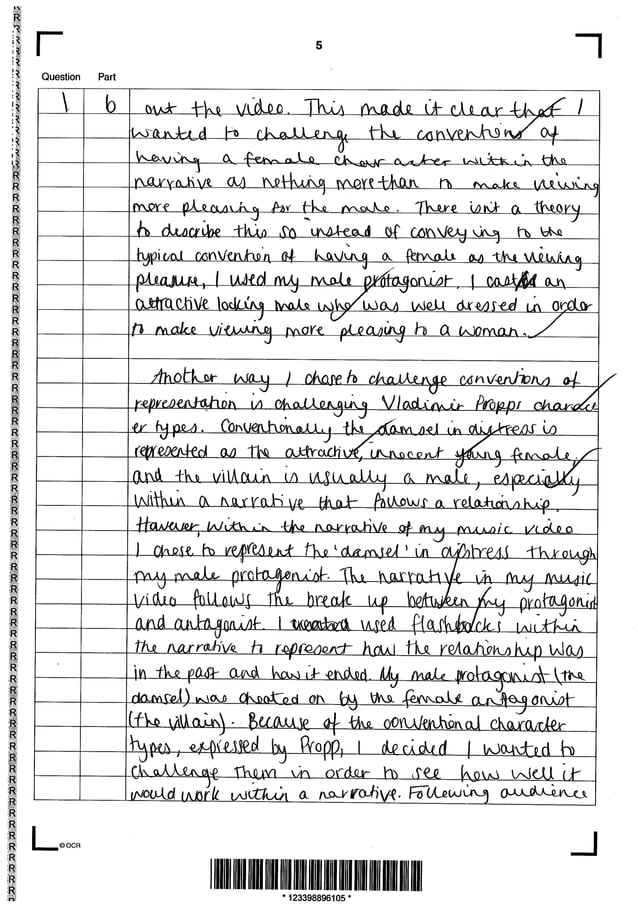 5
Question Part
1 b out the video. This made it clear that I
wanted to challenge the conventions of
having a female character within the
narrative as nothing more than to make viewing
more pleasing for the male. There isn't a theory
to describe this so instead of conveying to the
typical convention of having a female as the viewing
pleasure, I used my male protagonist. I cast an
attractive looking male who was well dressed in order
to make viewing more pleasing to a woman.
Another way I chose to challenge conventions of
representation is challenging Vladimir Propps charact
er types. Conventionally the damsel in distress is
represented as the attractive, innocent young female,
and the villain is usually a male, especially
within a narrative that follows a relationship.
However, within the narrative of my music video
I chose to represent the 'damsel' in distress through
my male protagonist. The narrative in my music
video follows the break up between my protagonist
and antagonist. I used flashbacks within
the narrative to represent how the relationship was
in the past and how it ended. My male protagonist (the
damsel) was cheated on by the female antagonist
(the villain). Because of the conventional character
types, expressed by Propp, I decided I wanted to
challenge them in order to see how well it
would work within a narrative. Following audience
© OCR
* 123398896105 *
R R R R R R R R R R R R R R R R R R R R R R R R R R R R R R R R R R R R R R R R R R R R R R R